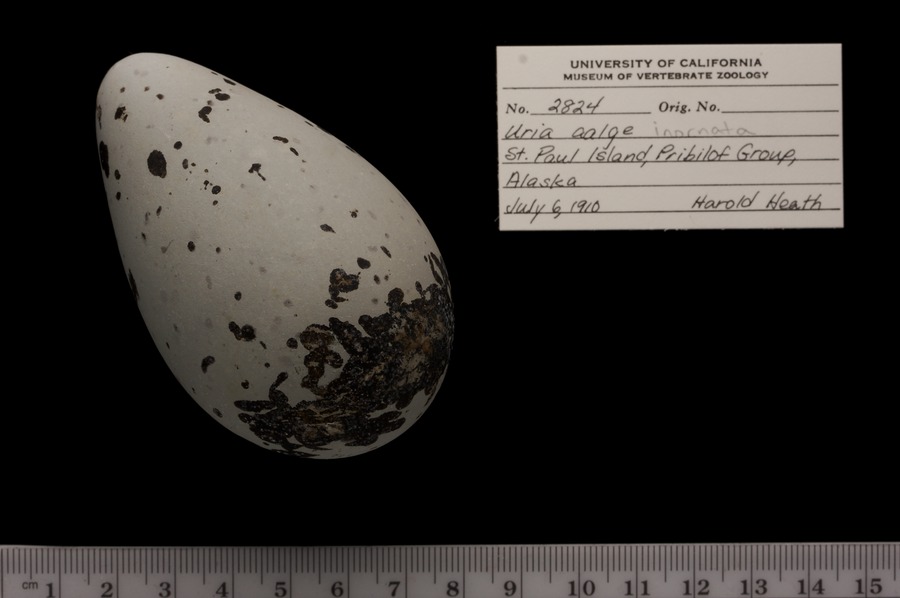 UNIVERSITY OF CALIFORNIA
MUSEUM OF VERTEBRATE ZOOLOGY
No. 2824 Orig. No.
Uria aalge inornata
St. Paul Island, Pribilof Group,
Alaska
July 6, 1910 Harold Heath
cm 1 2 3 4 5 6 7 8 9 10 11 12 13 14 15